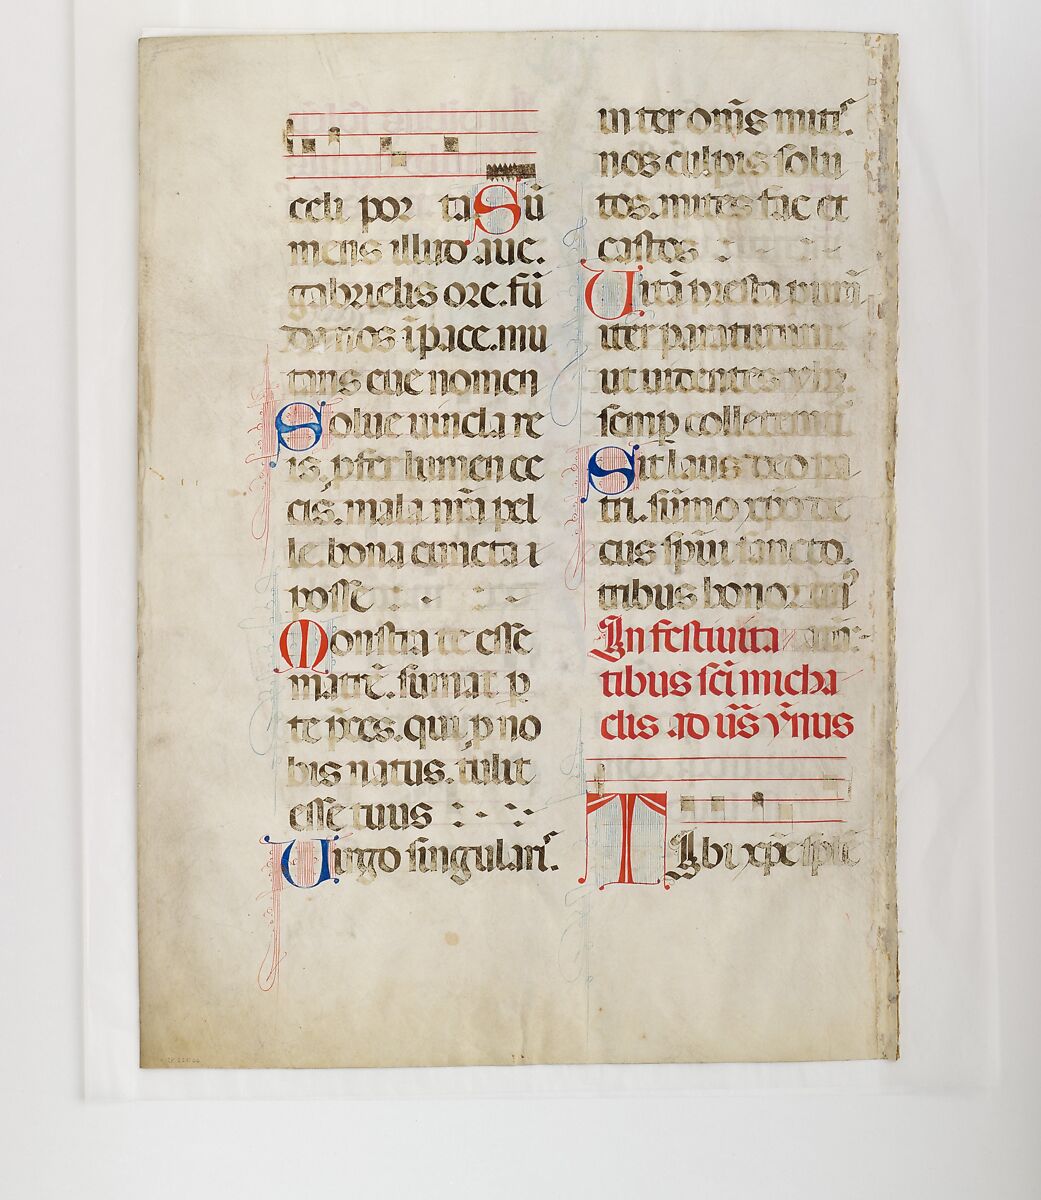 celi por ta Sū
mens illud aue.
gabrielis ore. fū
da nos ī pace. mu
tans eue nomen
Solue uincla re
is, ꝓfer lumen ce
cis. mala nr̄a pel
le. bona cuncta ī
posse
Monstra te esse
matrē. sumat ꝑ
te p̄ces. qui ꝓ no
bis natus. tulit
esse tuus
Uirgo singularis.
inter om̄s mitis.
nos culpis solu
tos. mites fac et
castos
Uitā presta purā
iter para tutum.
ut uidentes
semꝑ colletemur.
Sit laus deo pa
tri. sūmo xp̄o de
cus spūi sancto.
tribus honor unus
In festiuita
tibus sc̄i micha
elis ad uīs ymnus
Tibi xp̄e splē